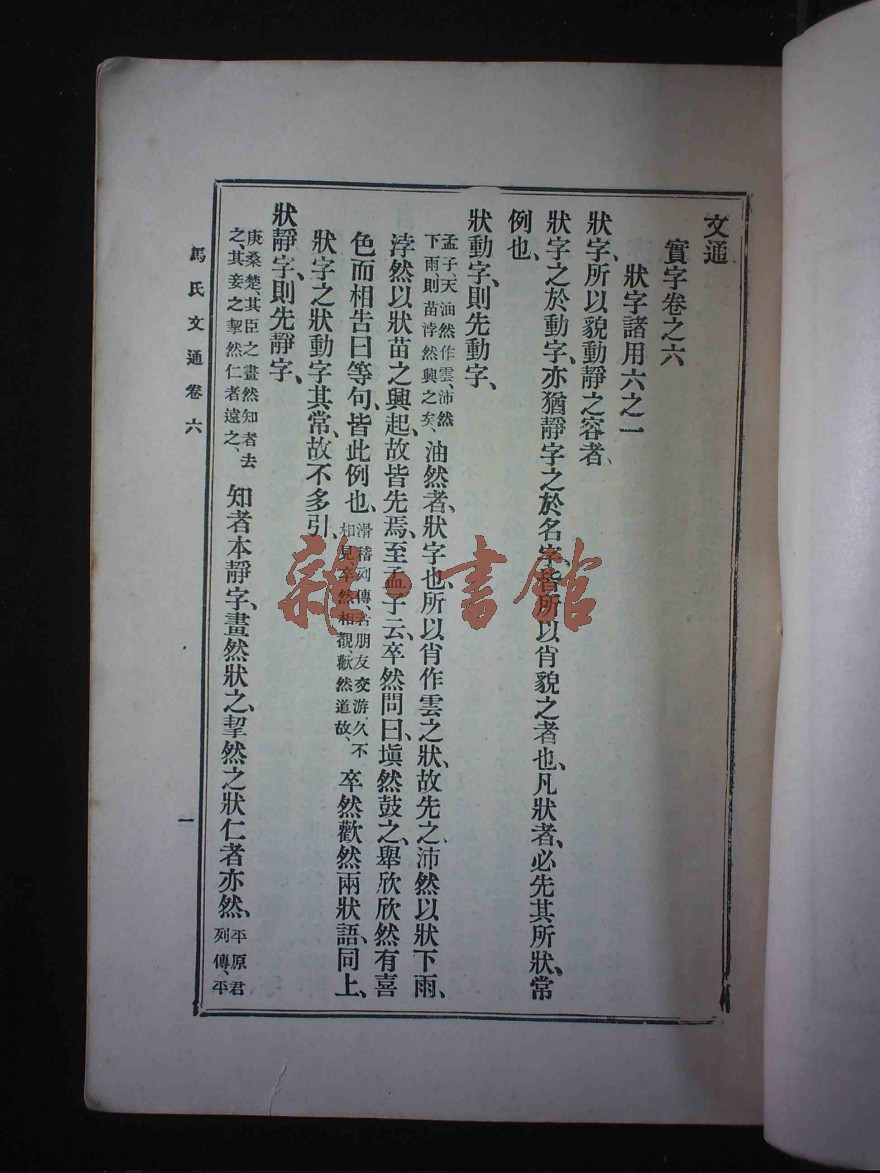 文通
實字卷之六
狀字諸用六之一
狀字、所以貌動靜之容者、
狀字之於動字、亦猶靜字之於名字、皆所以肖貌之者也、凡狀者、必先其所狀、常
例也、
狀動字、則先動字、
孟子、天油然作雲、沛然下雨、則苗浡然興之矣、油然者、狀字也、所以肖作雲之狀、故先之、沛然以狀下雨、
浡然以狀苗之興起、故皆先焉、至孟子云、卒然問曰、塡然鼓之、舉欣欣然有喜
色而相告曰等句、皆此例也、滑稽列傳、若朋友交游、久不相見、卒然相覩、歡然道故、卒然歡然兩狀語、同上、
狀字之狀動字其常、故不多引、
狀靜字、則先靜字、
庚桑楚、其臣之畫然知者去之、其妾之挈然仁者遠之、知者本靜字、畫然狀之、挈然之狀仁者亦然、平原君列傳、平
馬氏文通卷六
一
雜·書館